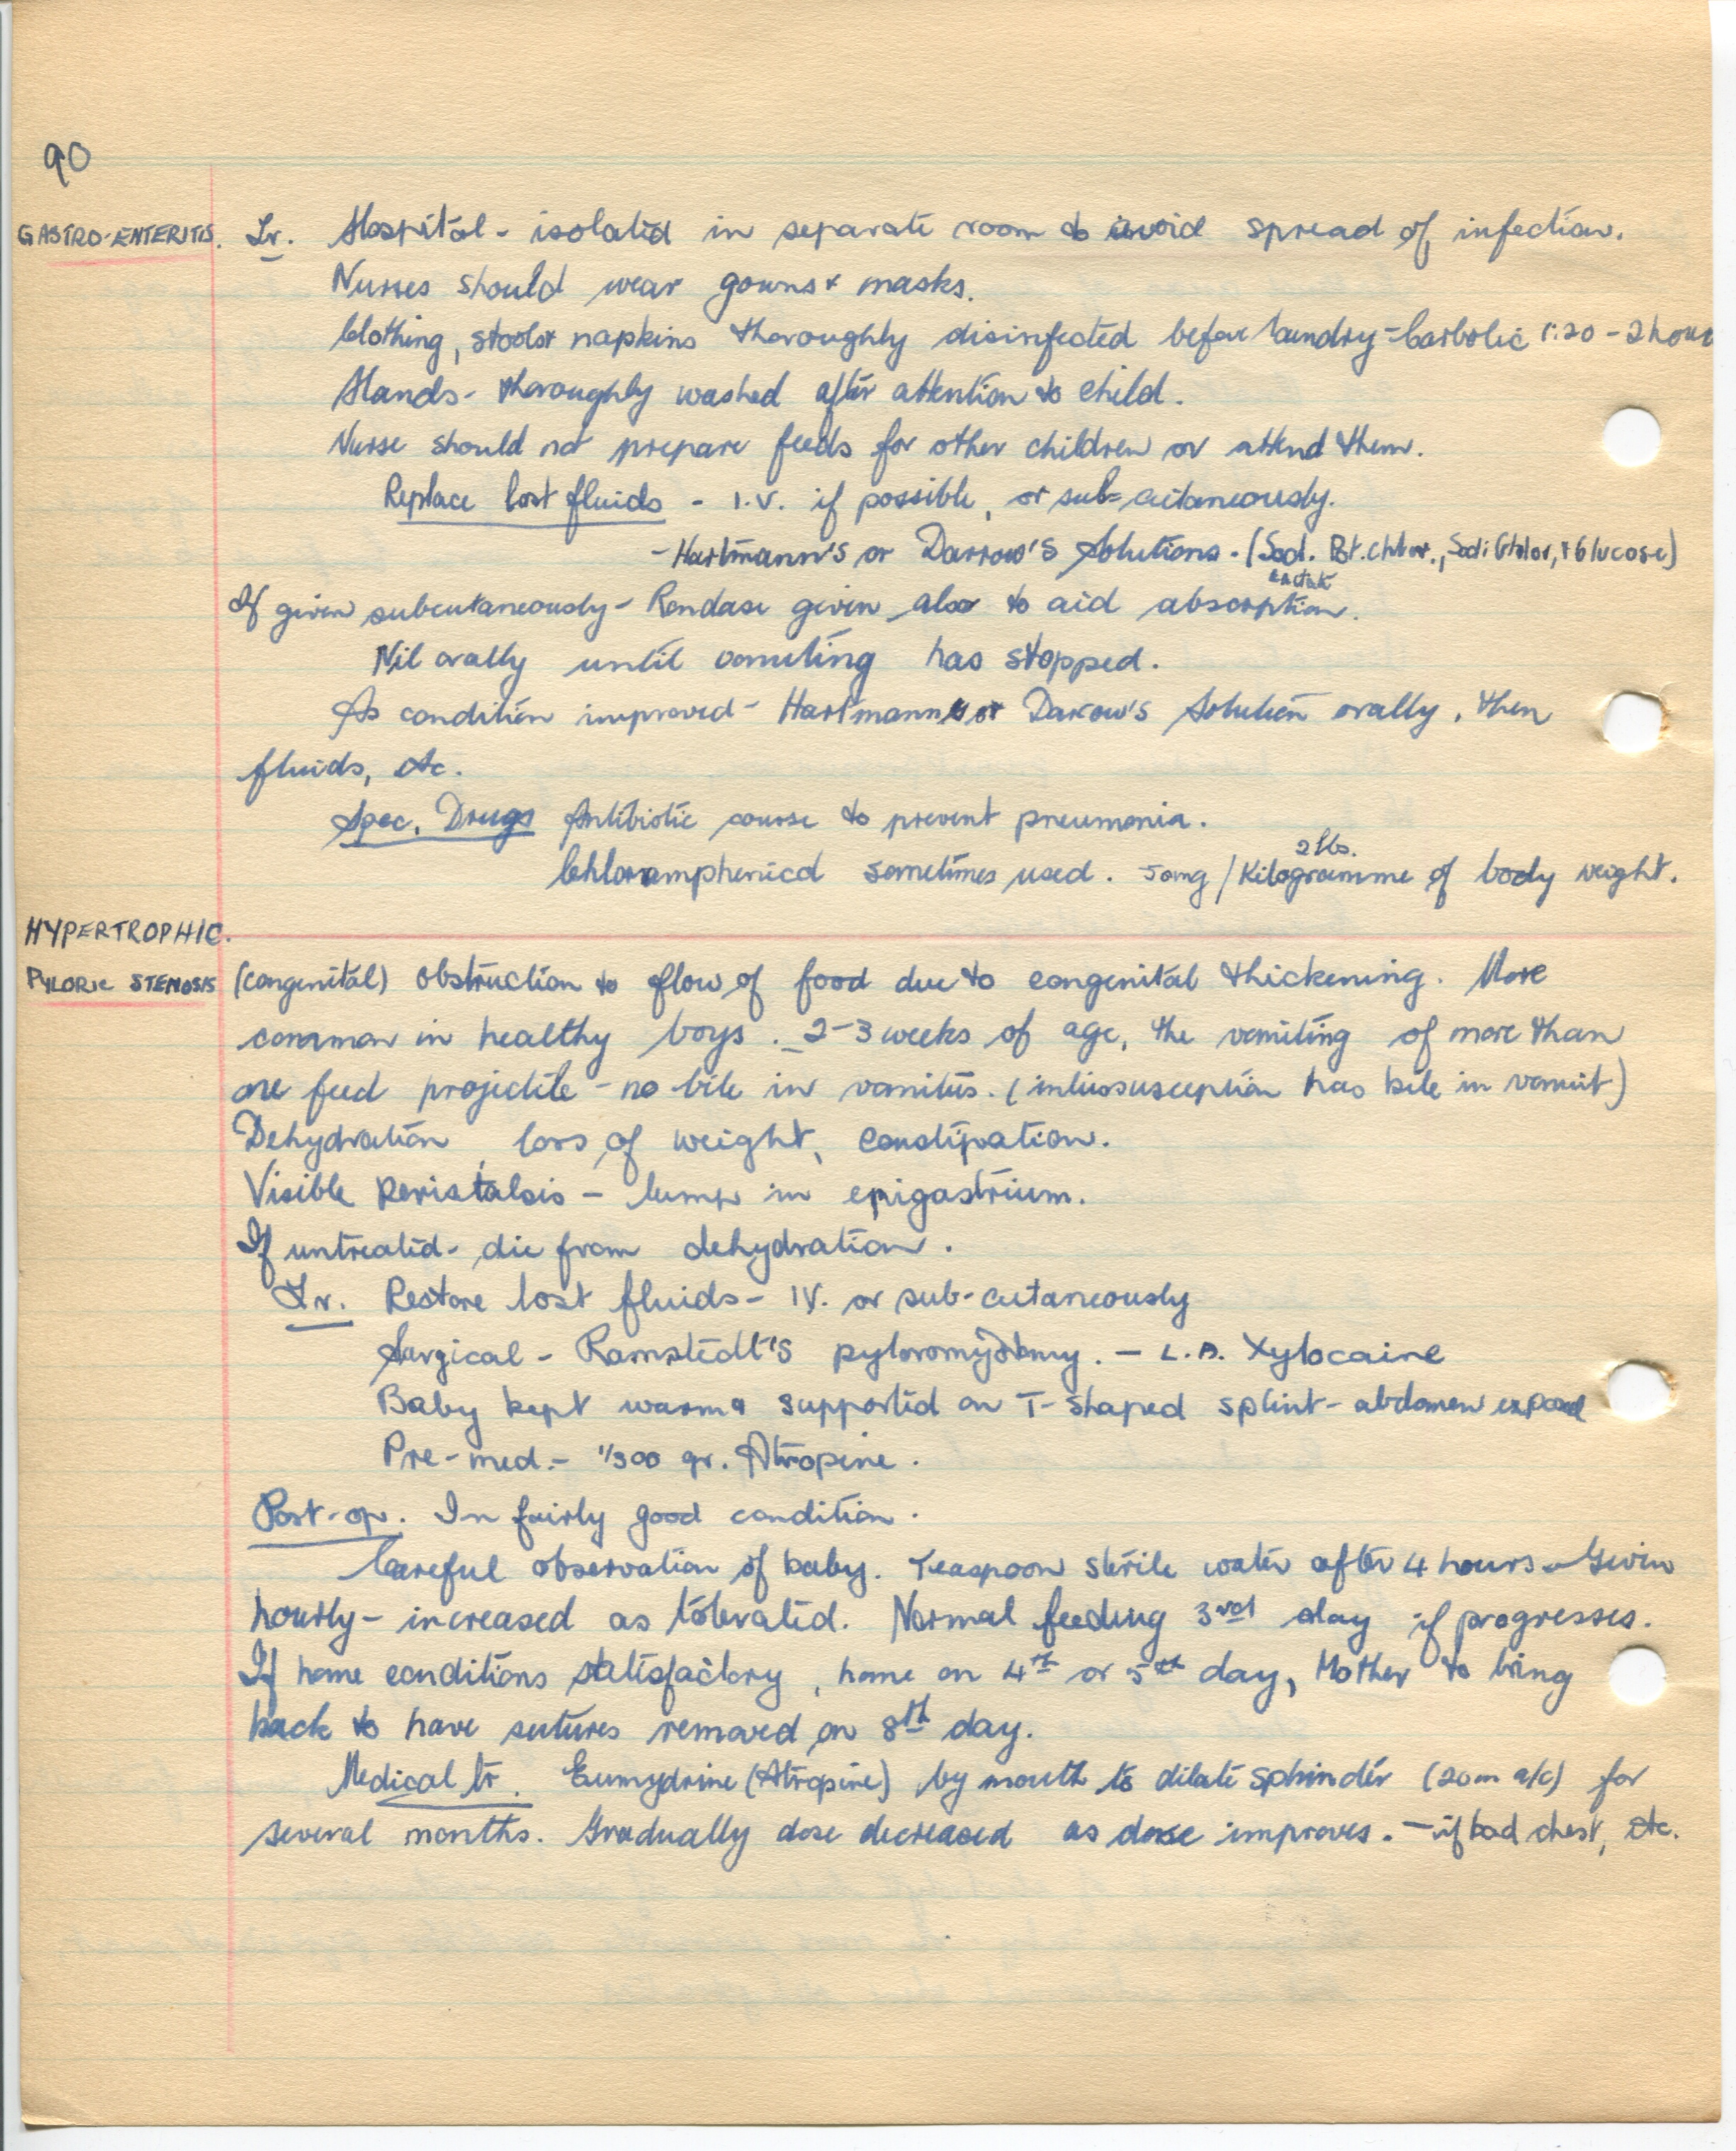 90
GASTRO-ENTERITIS. Tr. Hospital - isolated in separate room to avoid spread of infection.
Nurses should wear gowns & masks.
Clothing, stools & napkins thoroughly disinfected before laundry - Carbolic 1:20 - 2 hours
Hands - thoroughly washed after attention to child.
Nurse should not prepare feeds for other children or attend them.
Replace lost fluids - I.V. if possible, or sub-cutaneously.
- Hartmann's or Darrow's Solutions. (Sod. Pot. Chlor., Sodi Chlor, & Glucose)
Lactate
If given subcutaneously - Rondase given also to aid absorption.
Nil orally until vomiting has stopped.
As condition improved - Hartmann's or Darrow's Solution orally, then
fluids, etc.
Spec. Drugs Antibiotic course to prevent pneumonia.
2 lbs.
Chloramphenicol sometimes used. 50mg / Kilogramme of body weight.
HYPERTROPHIC.
PYLORIC STENOSIS (congenital) obstruction to flow of food due to congenital thickening. More
common in healthy boys. 2-3 weeks of age, the vomiting of more than
one feed projectile - no bile in vomitus. (intussusception has bile in vomit)
Dehydration, loss of weight, constipation.
Visible peristalsis - lump in epigastrium.
If untreated - die from dehydration.
Tr. Restore lost fluids - IV. or sub-cutaneously
Surgical - Ramstedt's pyloromyotomy. - L.A. Xylocaine
Baby kept warm & supported on T-shaped splint - abdomen exposed
Pre-med. - 1/300 gr. Atropine.
Post-op. In fairly good condition.
Careful observation of baby. Teaspoon sterile water after 4 hours - Given
hourly - increased as tolerated. Normal feeding 3rd day if progresses.
If home conditions satisfactory, home on 4th or 5th day, Mother to bring
back to have sutures removed on 8th day.
Medical tr. Eumydrine (Atropine) by mouth to dilate sphincter (20m a/c) for
several months. Gradually dose decreased as dose improves. - if bad chest, etc.